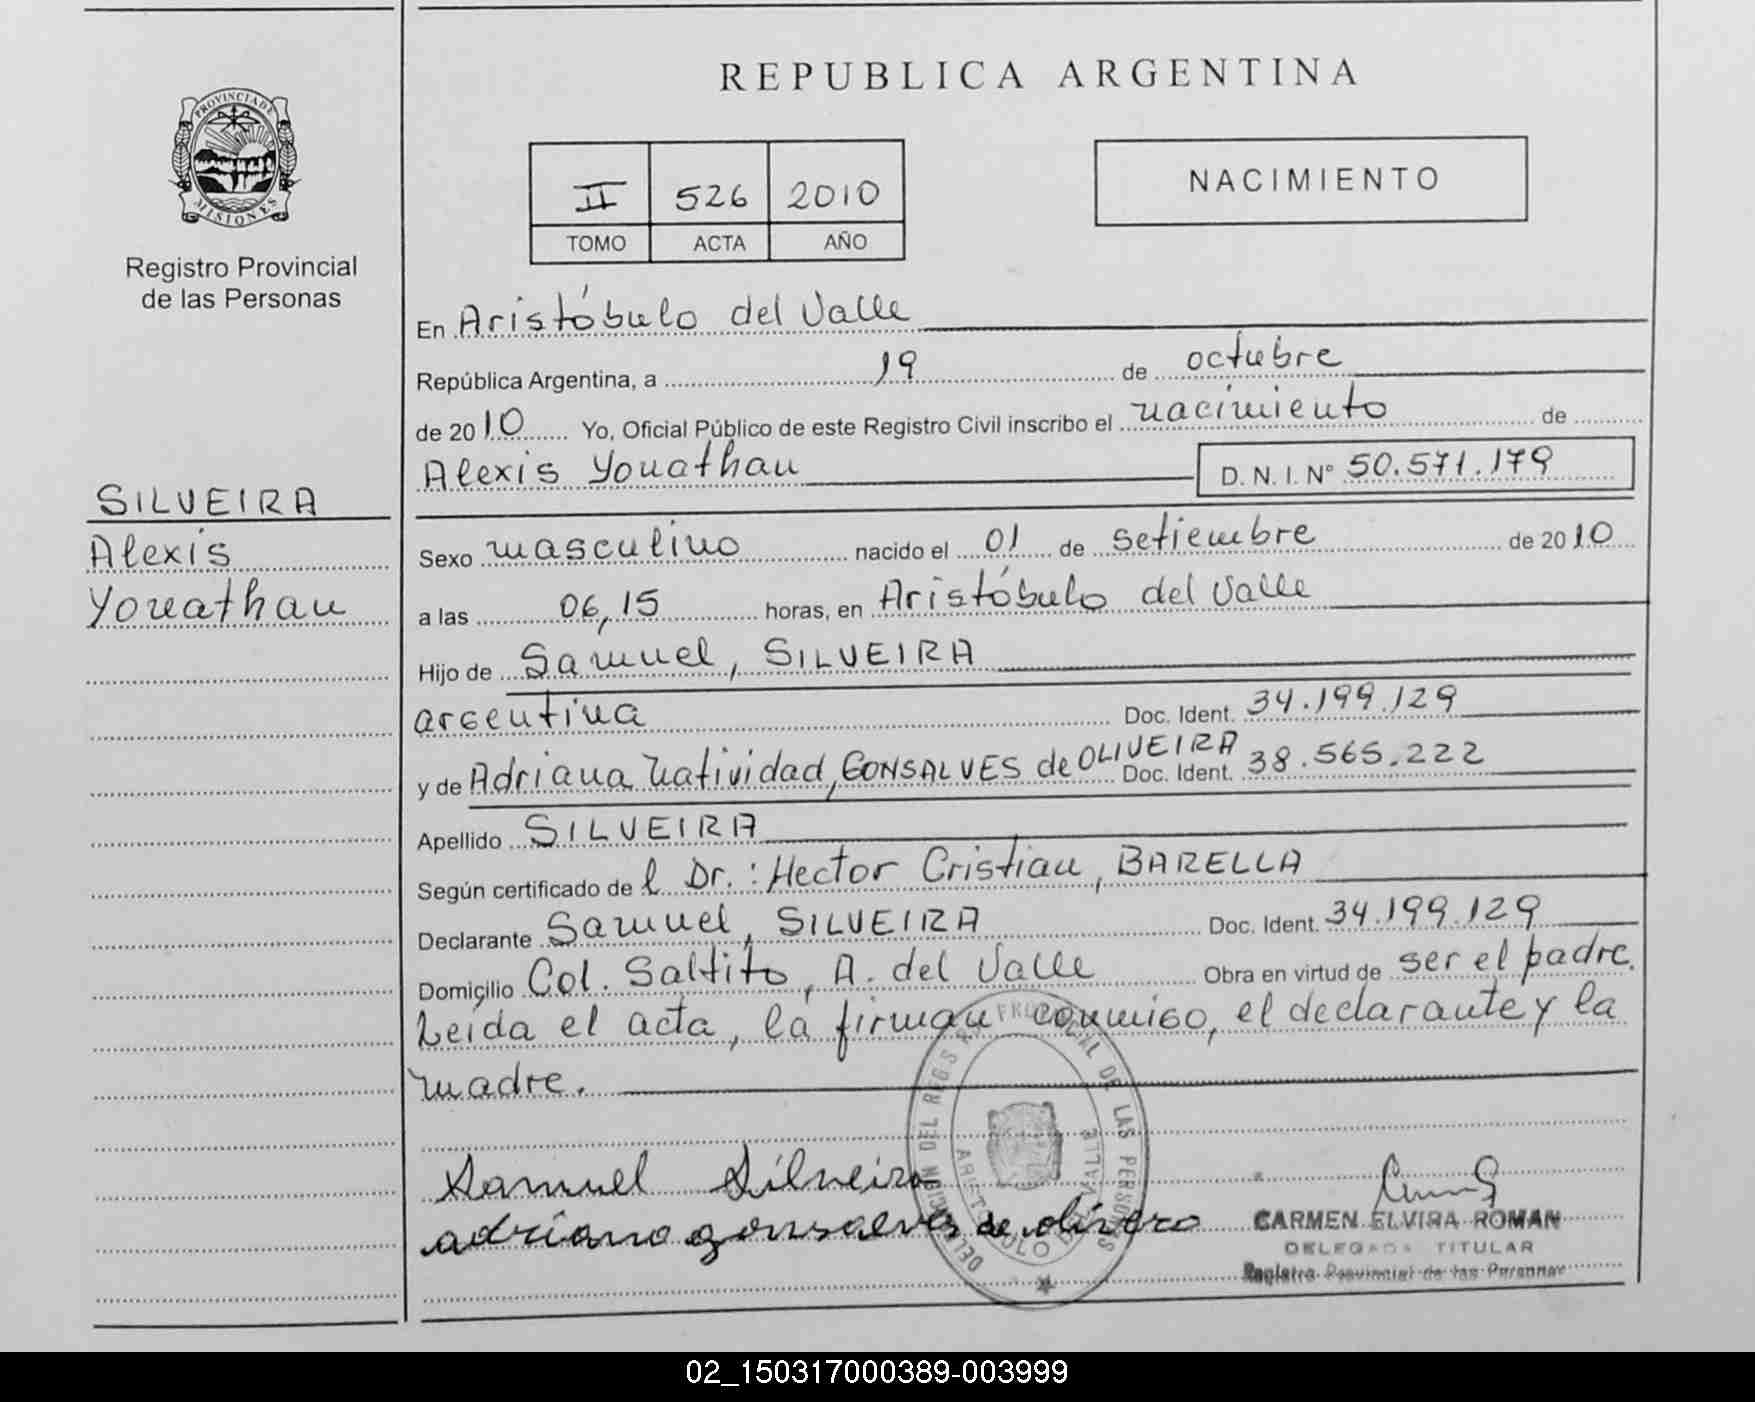 PROVINCIA DE
MISIONES
Registro Provincial
de las Personas
SILVEIRA
Alexis
Yonathan
REPUBLICA ARGENTINA
II 526 2010
TOMO ACTA AÑO
NACIMIENTO
En Aristóbulo del Valle
República Argentina, a 19 de octubre
de 2010 Yo, Oficial Público de este Registro Civil inscribo el nacimiento de
Alexis Yonathan D. N. I. Nº 50.571.179
Sexo masculino nacido el 01 de setiembre de 2010
a las 06,15 horas, en Aristóbulo del Valle
Hijo de Samuel, SILVEIRA
argentina Doc. Ident. 34.199.129
y de Adriana Natividad, GONSALVES de OLIVEIRA Doc. Ident. 38.565.222
Apellido SILVEIRA
Según certificado de l Dr.: Hector Cristian, BARELLA
Declarante Samuel, SILVEIRA Doc. Ident. 34.199.129
Domicilio Col. Saltito, A. del Valle Obra en virtud de ser el padre.
Leída el acta, la firman conmigo, el declarante y la
madre.
Samuel Silveira
adriana gonsalves de olivera
CARMEN ELVIRA ROMAN
DELEGADA TITULAR
Registro Provincial de las Personas
02_150317000389-003999